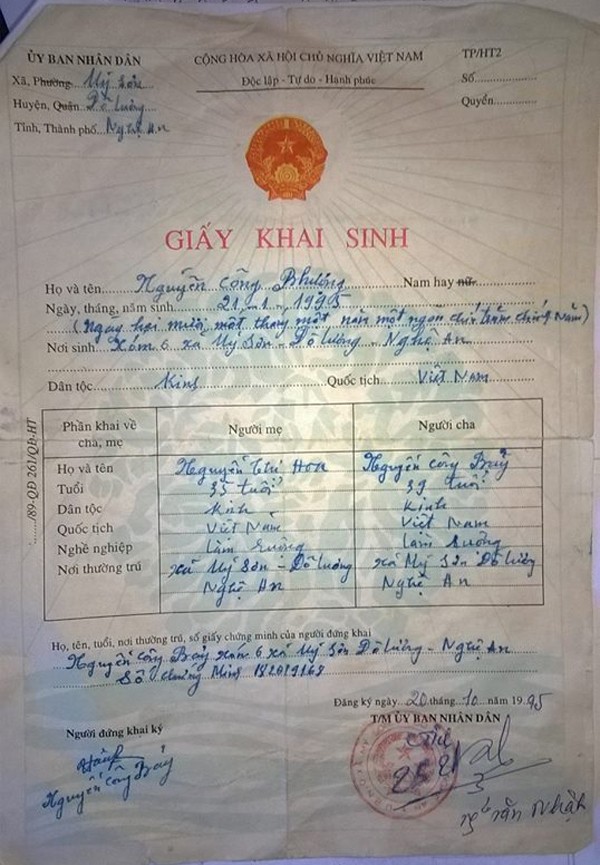 ỦY BAN NHÂN DÂN
CỘNG HÒA XÃ HỘI CHỦ NGHĨA VIỆT NAM
TP/HT2
Xã, Phường Mỹ Sơn
Độc lập - Tự do - Hạnh phúc
Số
Huyện, Quận Đô Lương
Quyển
Tỉnh, Thành phố Nghệ An
GIẤY KHAI SINH
Họ và tên Nguyễn Công Phượng Nam hay nữ
Ngày, tháng, năm sinh 21.1.1995
(Ngày hai mươi một tháng một năm một ngàn chín trăm chín năm)
Nơi sinh Xóm 6 xã Mỹ Sơn - Đô Lương - Nghệ An
Dân tộc Kinh Quốc tịch Việt Nam
Phần khai về cha, mẹ Người mẹ Người cha
Họ và tên Nguyễn Thị Hoa Nguyễn Công Bảy
Tuổi 35 tuổi 39 tuổi
Dân tộc Kinh Kinh
Quốc tịch Việt Nam Việt Nam
Nghề nghiệp Làm ruộng Làm ruộng
Nơi thường trú Xã Mỹ Sơn - Đô Lương Xã Mỹ Sơn Đô Lương
Nghệ An Nghệ An
/89-QĐ 261/QĐ-HT
Họ, tên, tuổi, nơi thường trú, số giấy chứng minh của người đứng khai
Nguyễn Công Bảy xóm 6 xã Mỹ Sơn Đô Lương - Nghệ An
Số chứng minh 182019168
Đăng ký ngày 20 tháng 10 năm 1995
Người đứng khai ký
T/M ỦY BAN NHÂN DÂN
Nguyễn Công Bảy